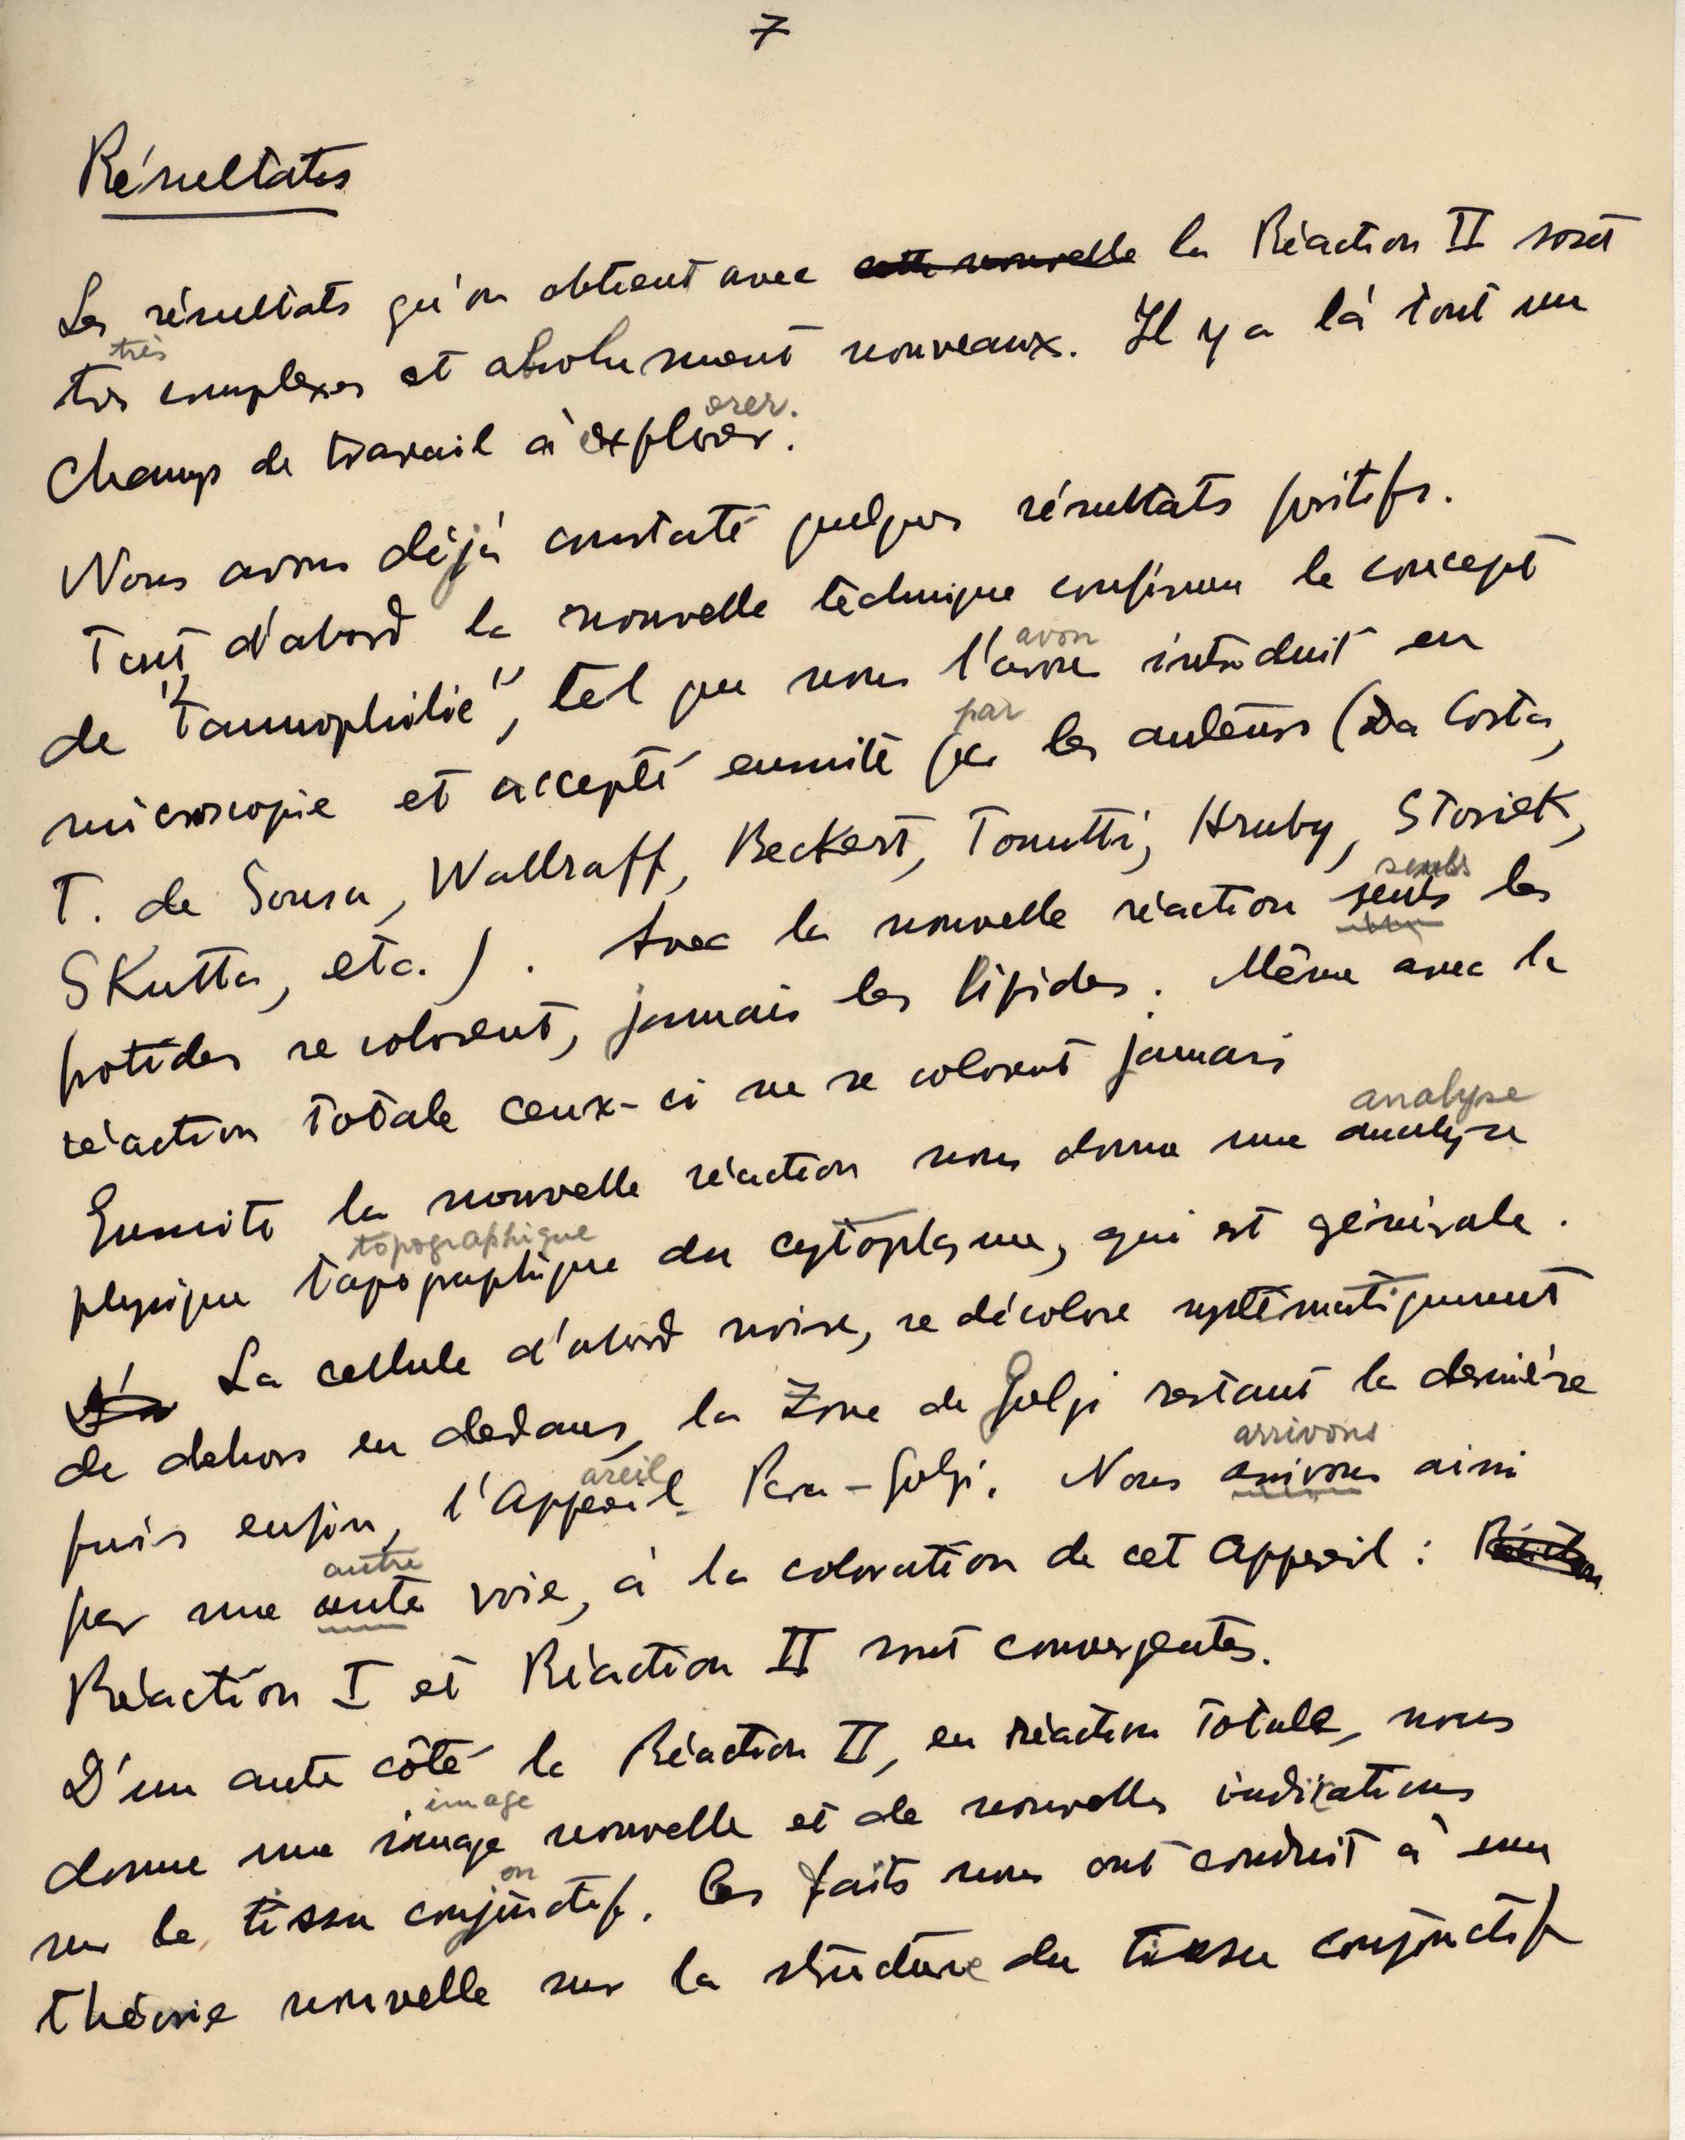 7
Résultates
Les résultats qu'on obtient avec cette nouvelle la Réaction II sont
très
très complexes et absolument nouveaux. Il y a là tout un
orer.
Champ de travail à explorer.
Nous avons déjà constaté quelques résultats positifs.
Tout d'abord la nouvelle technique confirme le concept
avon
de "Tannophilie", tel que nous l'avons introduit en
par
microscopie et accepté ensuite par les auteurs (Da Costa,
T. de Sousa, Wallraff, Beckert, Tonutti, Hruby, Storiek,
seuls
Skutta, etc.). Avec la nouvelle réaction seuls les
protides se colorent, jamais les lipides. Même avec la
réaction totale ceux-ci ne se colorent jamais
analyse
Ensuite la nouvelle réaction nous donne une analyse
topographique
physique topographique du cytoplasme, qui est générale.
La cellule d'abord noire, se décolore systématiquement
de dehors en dedans, la Zone de Golgi restant la dernière
areil arrivons
puis enfin, l'Appareil Para-Golgi. Nous arrivons ainsi
autre
par une autre voie, à la coloration de cet Appareil : Réaction
Réaction I et Réaction II sont convergentes.
D'un autre côté la Réaction II, en réaction totale, nous
image
donne une image nouvelle et de nouvelles indications
on
sur le tissu conjonctif. Ces faits nous ont conduit à une
théorie nouvelle sur la structure du tissu conjonctif